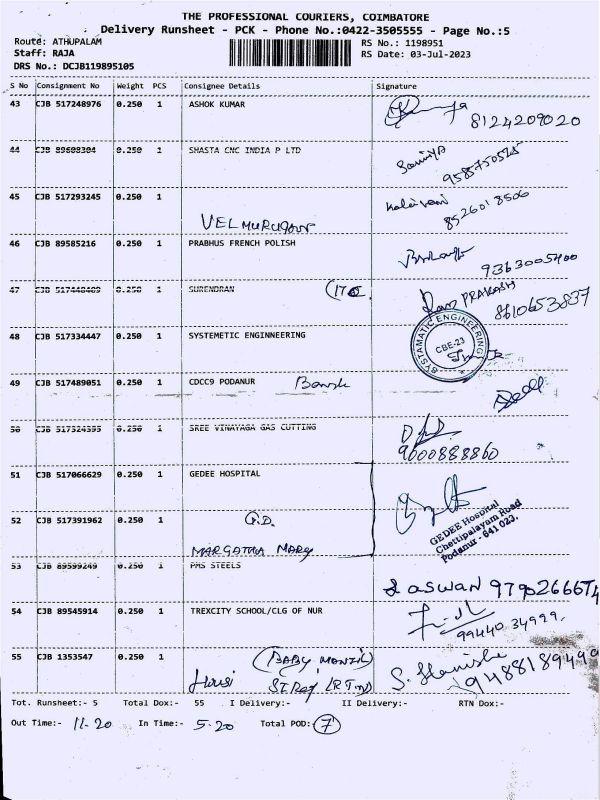 THE PROFESSIONAL COURIERS, COIMBATORE
Delivery Runsheet - PCK - Phone No.:0422-3505555 - Page No.:5
Route: ATHUPALAM
RS No.: 1198951
Staff: RAJA
RS Date: 03-Jul-2023
DRS No.: DCJB119895105
S No Consignment No Weight PCS Consignee Details Signature
43 CJB 517248976 0.250 1 ASHOK KUMAR
8124209020
44 CJB 89608304 0.250 1 SHASTA CNC INDIA P LTD
Saniya
9585750525
45 CJB 517293245 0.250 1
Kalaivani
8526018506
VELMURUGAN
46 CJB 89585216 0.250 1 PRABHUS FRENCH POLISH
9363005400
47 CJB 517448489 0.250 1 SURENDRAN
PRAKASH
8610653837
48 CJB 517334447 0.250 1 SYSTEMETIC ENGINNEERING
SYSTAMATIC ENGINEERING
CBE-23
49 CJB 517489051 0.250 1 CDCC9 PODANUR
50 CJB 517324395 0.250 1 SREE VINAYAGA GAS CUTTING
9600888860
51 CJB 517066629 0.250 1 GEDEE HOSPITAL
GEDEE Hospital
Chettipalayam Road
Podanur - 641 023.
52 CJB 517391962 0.250 1
G.D.
MARGATHA MARY
53 CJB 89599249 0.250 1 PMS STEELS
ASWAN 9790266674
54 CJB 89545914 0.250 1 TREXCITY SCHOOL/CLG OF NUR
99440 34999.
55 CJB 1353547 0.250 1
(BABY MANZIL)
9488189499
Tot. Runsheet:- 5 Total Dox:- 55 I Delivery:- II Delivery:- RTN Dox:-
Out Time:- 11-20 In Time:- 5-20 Total POD:- 7